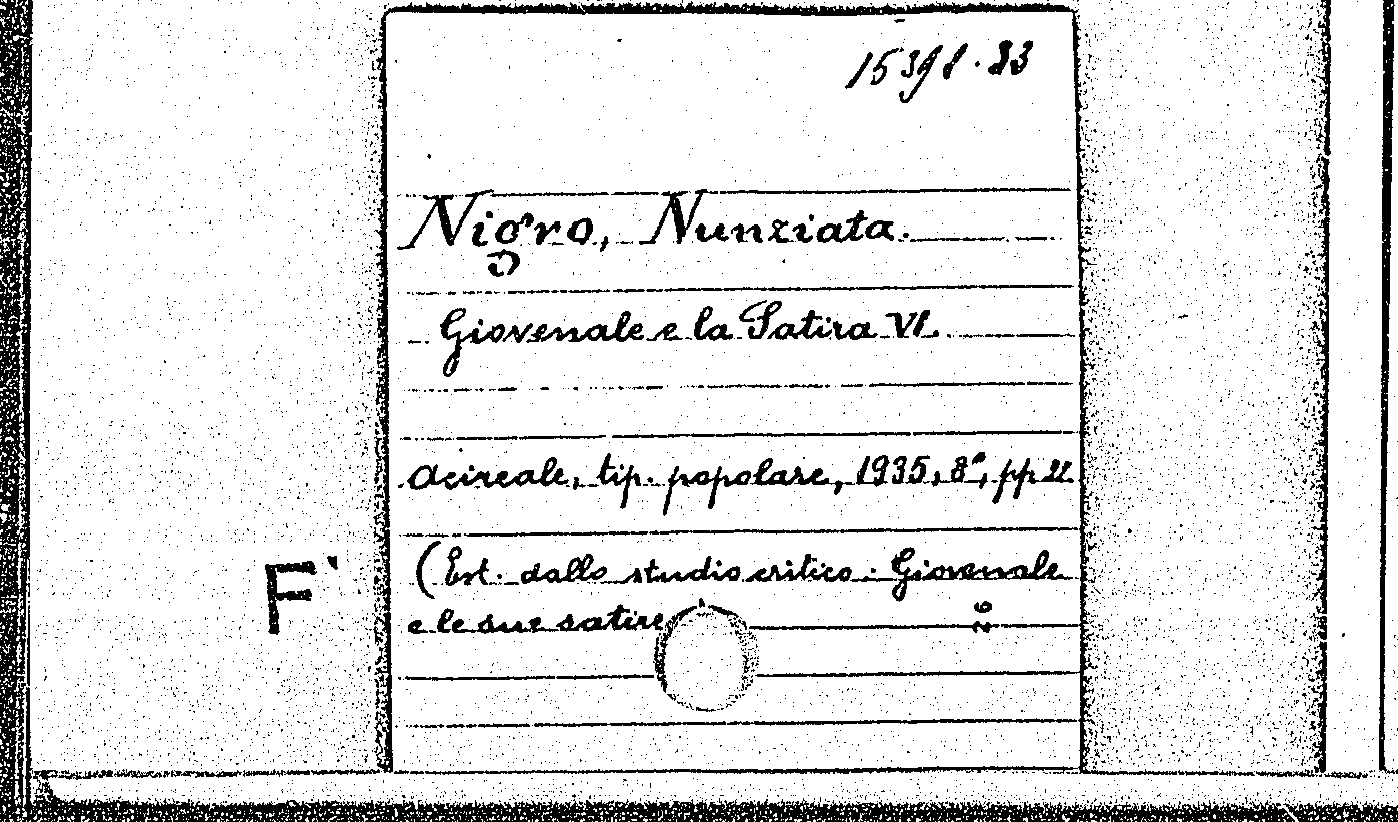 15391.23
Nigro, Nunziata.
Giovenale e la Satira VI.
Acireale, tip. popolare, 1935, 8°, pp
(Est. dallo studio critico: Giovenale
e le sue satire
26
F'